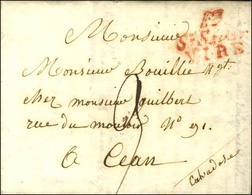 Monsieur
Monsieur Bouillié Ngt.
Chez monsieur Guilbert
rue du moulin N° 91.
à Caen
Calvados